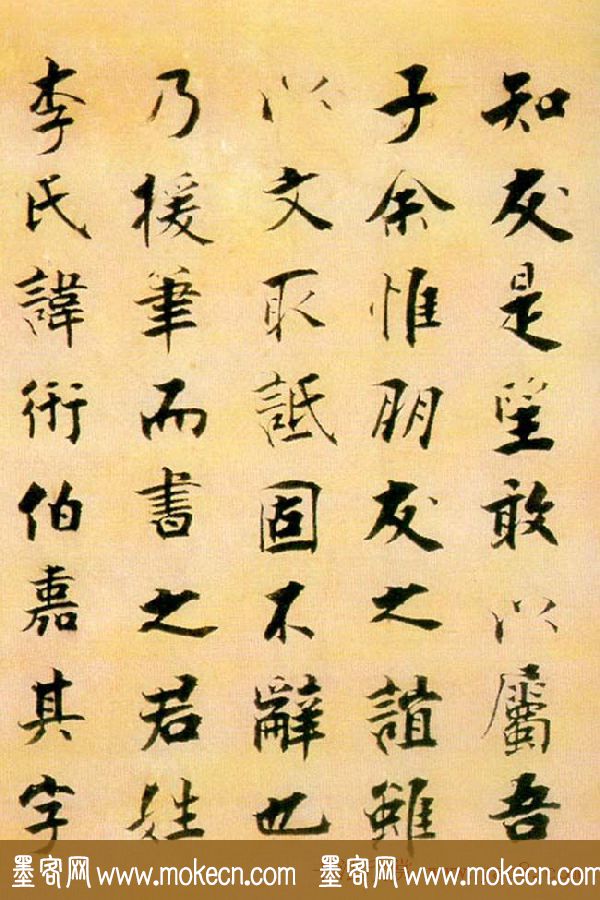 知友是望敢以屬吾
子余惟朋友之誼雖
以文取詆固不辭也
乃援筆而書之若姓
李氏諱衎伯嘉其字
墨客网 www.mokecn.com 墨客网 www.mokecn.com